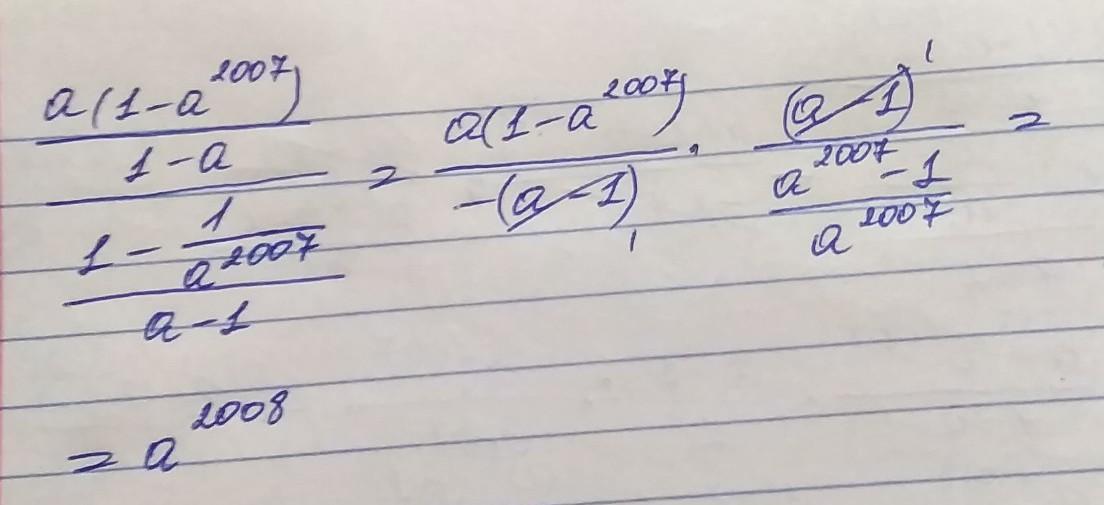 \frac{\frac{a(1-a^{2007})}{1-a}}{\frac{1-\frac{1}{a^{2007}}}{a-1}} = \frac{a(1-a^{2007})}{-(a-1)} \cdot \frac{(a-1)}{\frac{a^{2007}-1}{a^{2007}}} =
= a^{2008}